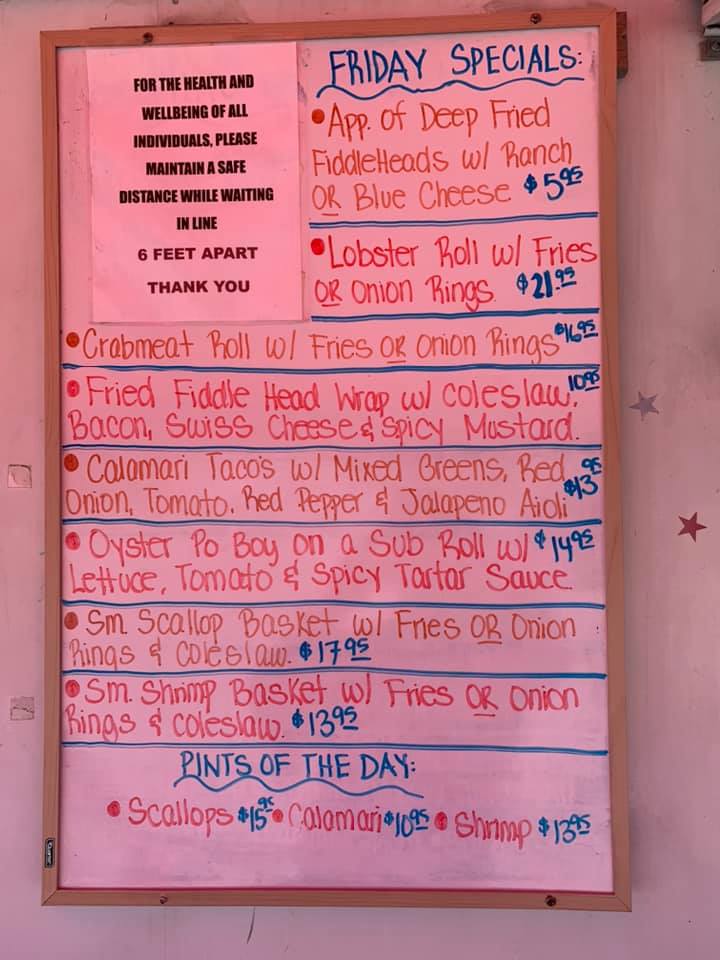 FOR THE HEALTH AND
WELLBEING OF ALL
INDIVIDUALS, PLEASE
MAINTAIN A SAFE
DISTANCE WHILE WAITING
IN LINE
6 FEET APART
THANK YOU
FRIDAY SPECIALS:
• App. of Deep Fried
FiddleHeads w/ Ranch
OR Blue Cheese $5.95
• Lobster Roll w/ Fries
OR Onion Rings. $21.95
• Crabmeat Roll w/ Fries OR Onion Rings $16.95
• Fried Fiddle Head Wrap w/ Coleslaw, 10.95
Bacon, Swiss Cheese & Spicy Mustard.
• Calamari Taco's w/ Mixed Greens, Red
Onion, Tomato, Red Pepper & Jalapeno Aioli $13.95
• Oyster Po Boy on a Sub Roll w/ $14.95
Lettuce, Tomato & Spicy Tartar Sauce
• Sm. Scallop Basket w/ Fries OR Onion
Rings & Coleslaw. $17.95
• Sm. Shrimp Basket w/ Fries OR Onion
Rings & Coleslaw. $13.95
PINTS OF THE DAY:
• Scallops $15.95 • Calamari $10.95 • Shrimp $13.95